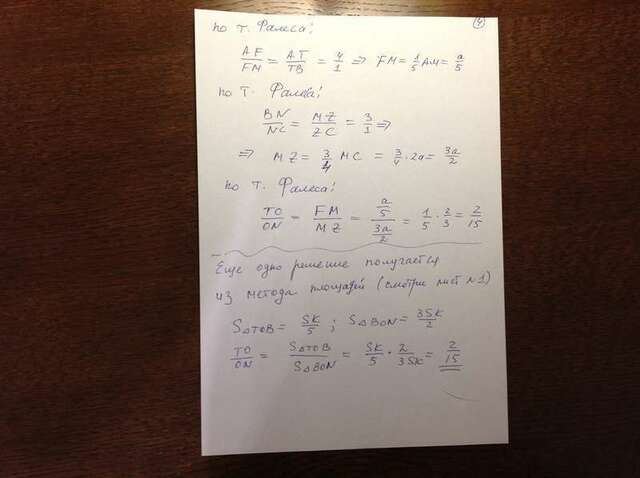 по т. Фалеса:
④
AF/FM = AT/TB = 4/1 ⇒ FM = 1/5 AM = a/5
по т. Фалеса:
BN/NC = MZ/ZC = 3/1 ⇒
⇒ MZ = 3/4 MC = 3/4 · 2a = 3a/2
по т. Фалеса:
TO/ON = FM/MZ = (a/5)/(3a/2) = 1/5 · 2/3 = 2/15
Еще одно решение получается
из метода площадей (смотри лист №1)
S△TOB = SK/5 ; S△BON = 3SK/2
TO/ON = S△TOB/S△BON = SK/5 · 2/3SK = 2/15